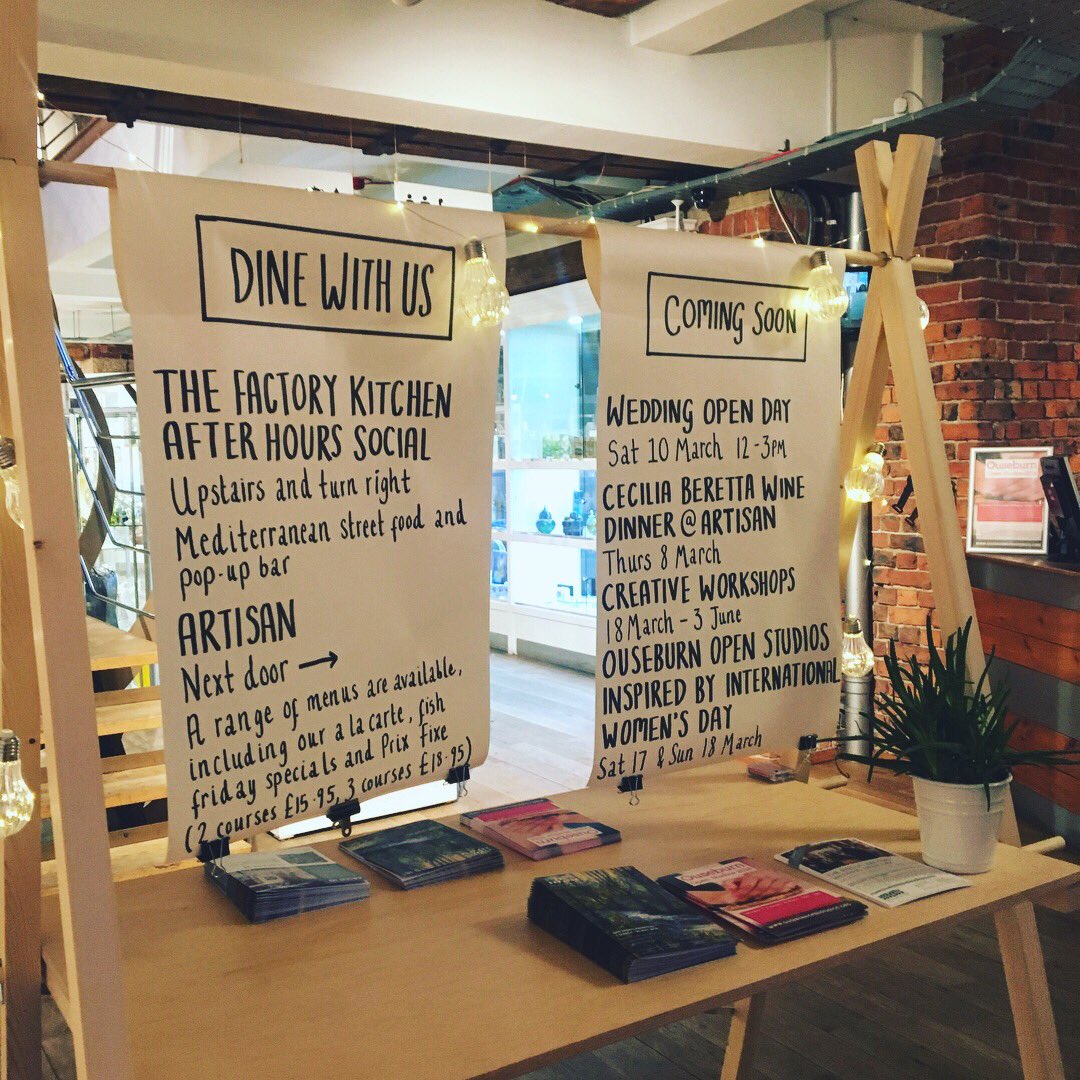 DINE WITH US
THE FACTORY KITCHEN
AFTER HOURS SOCIAL
Upstairs and turn right
Mediterranean street food and
pop-up bar
ARTISAN
Next door →
A range of menus are available,
including our a la carte, fish
friday specials and Prix Fixe
(2 courses £15.95, 3 courses £18.95)
COMING SOON
WEDDING OPEN DAY
Sat 10 March 12-3PM
CECILIA BERETTA WINE
DINNER @ ARTISAN
Thurs 8 March
CREATIVE WORKSHOPS
18 March - 3 June
OUSEBURN OPEN STUDIOS
INSPIRED BY INTERNATIONAL
WOMEN'S DAY
Sat 17 & Sun 18 March
Ouseburn
Ouseburn